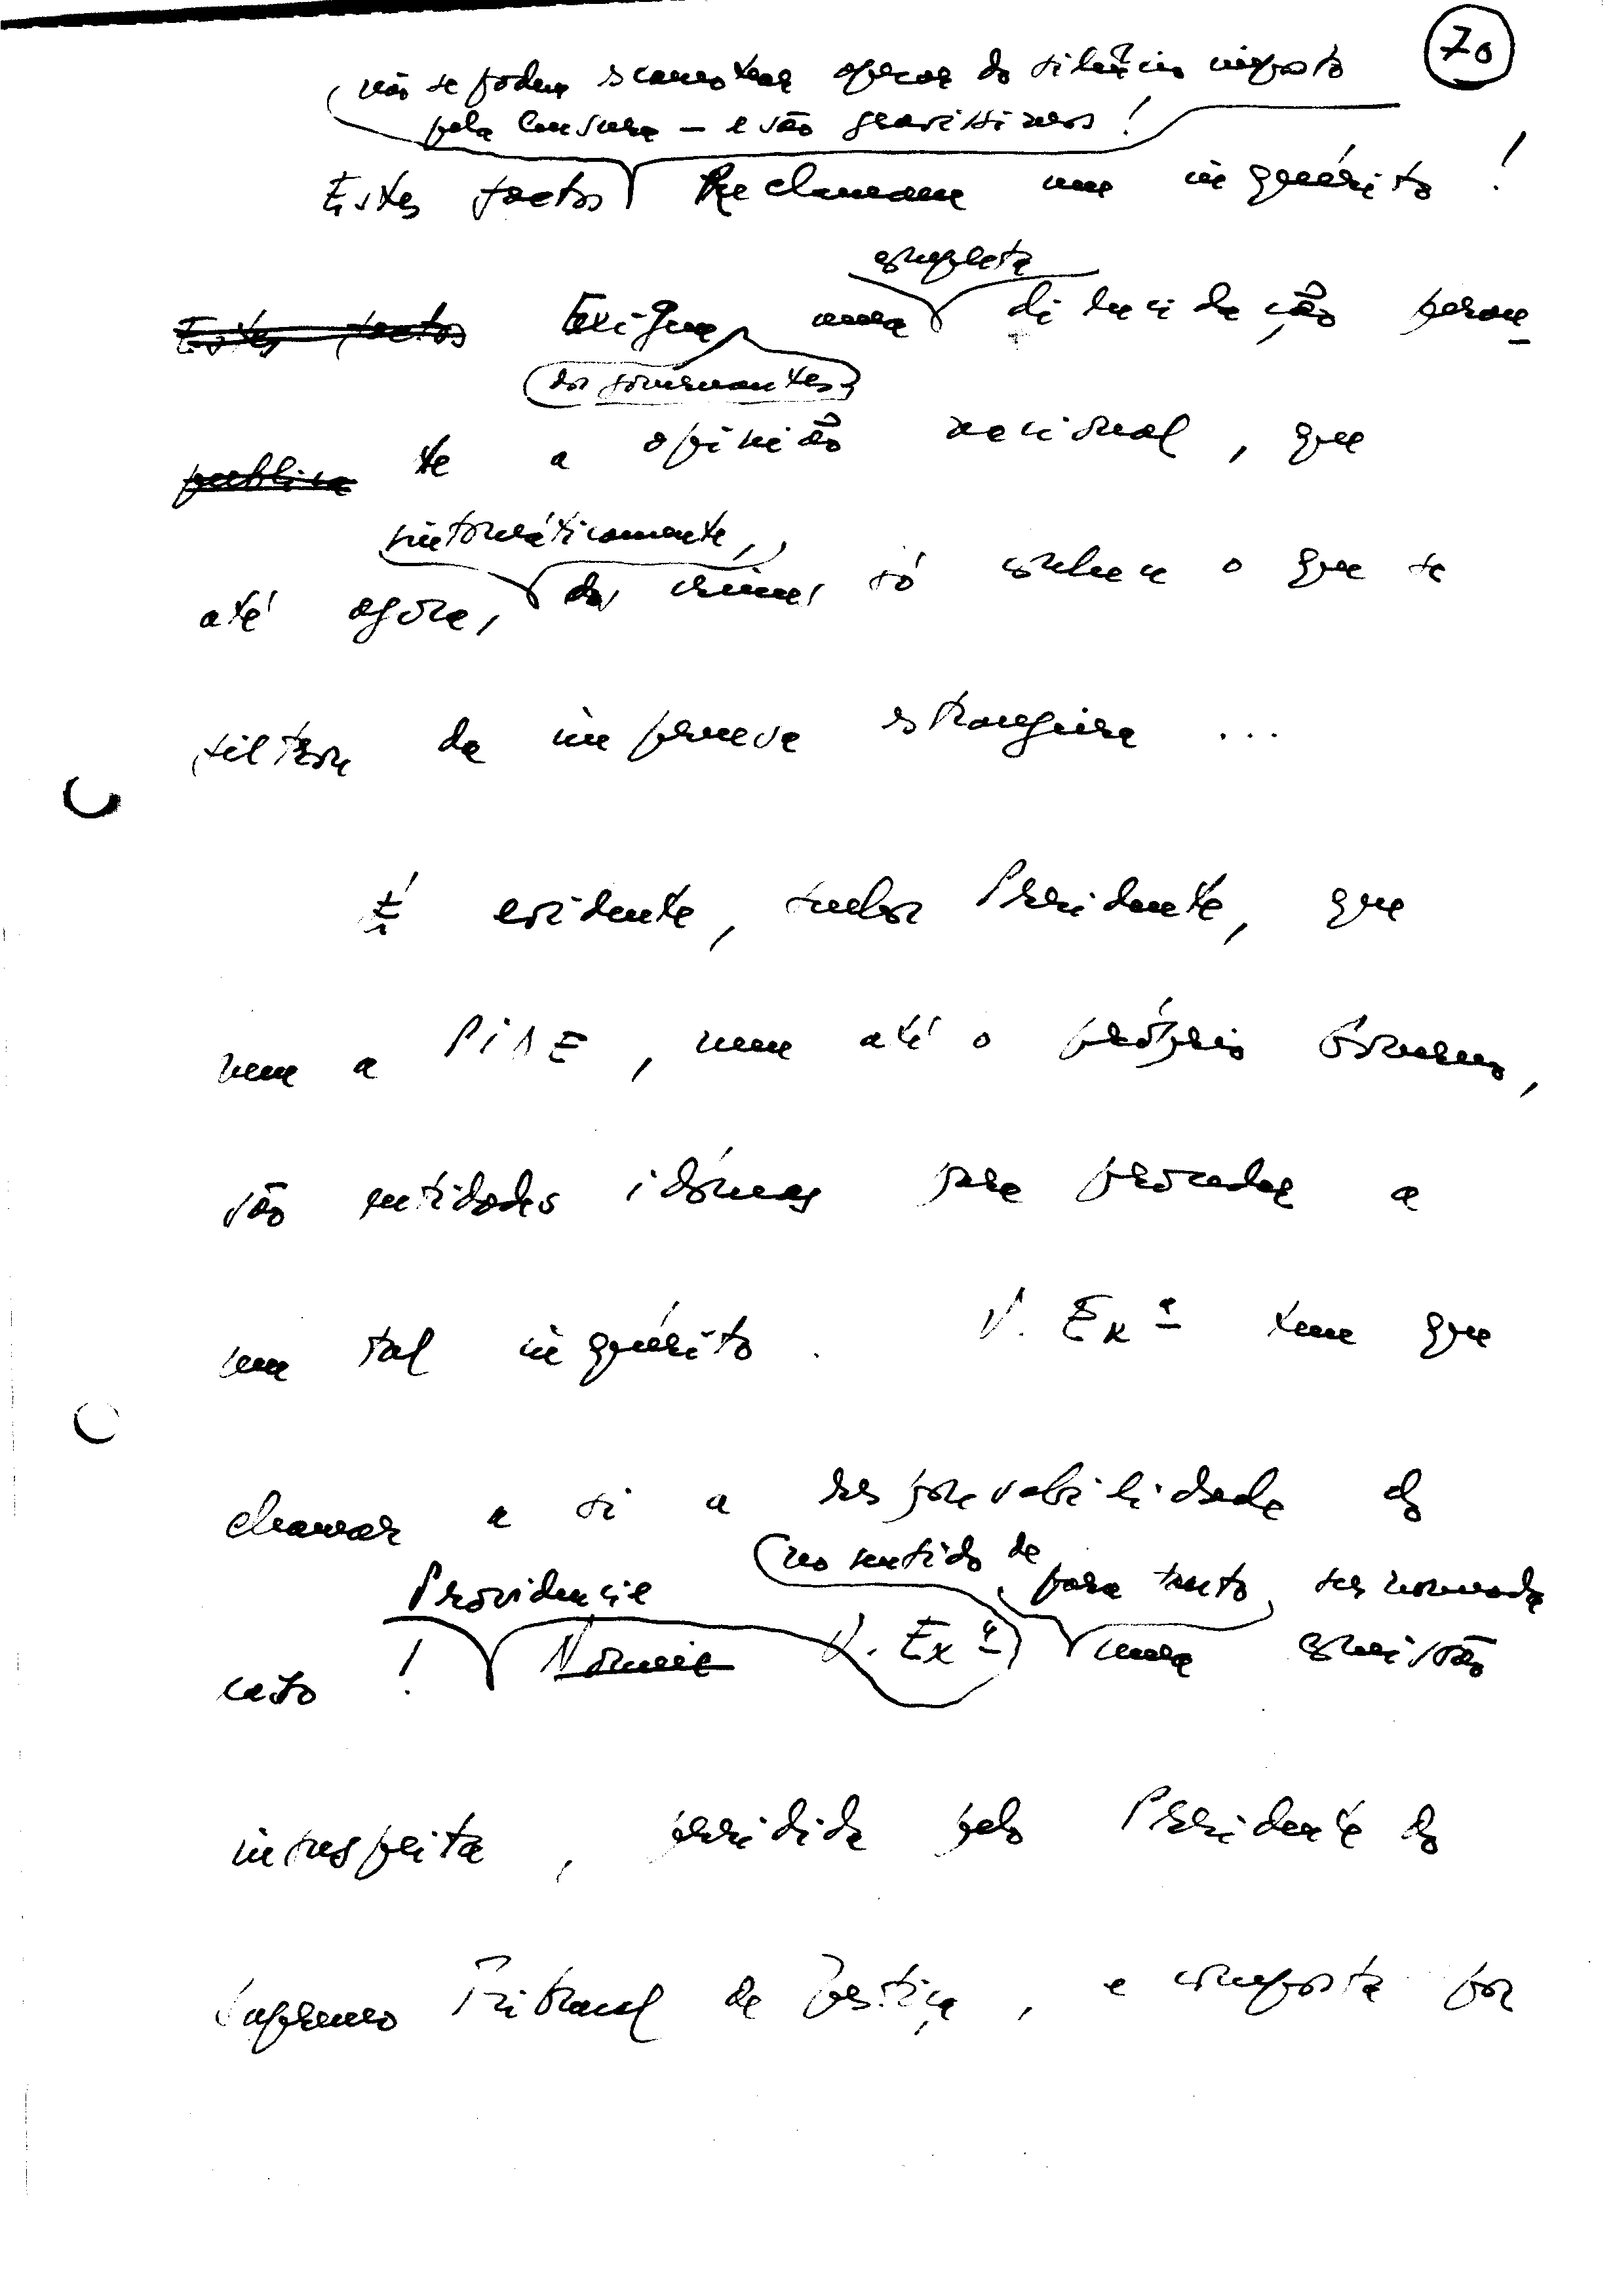 70
não se podem escamotear apesar do silêncio imposto
pela Censura – e são gravíssimos!
Estes factos Reclamam um inquérito!
completa
Estes factos Exigem uma elucidação peran
dos governantes
publica te a opinião nacional, que
sintomáticamente,
até agora, dos crimes só conhece o que se
filtrou da imprensa estrangeira ...
É evidente, senhor Presidente, que
nem a PIDE, nem até o próprio Governo,
são entidades idóneas para proceder a
um tal inquérito. V. Exª tem que
chamar a si a responsabilidade do
Providencie no sentido de para tanto ser nomeada
caso! Nomeie V. Exª uma comissão
insuspeita, presidida pelo Presidente do
Supremo Tribunal de Justiça, e composta por